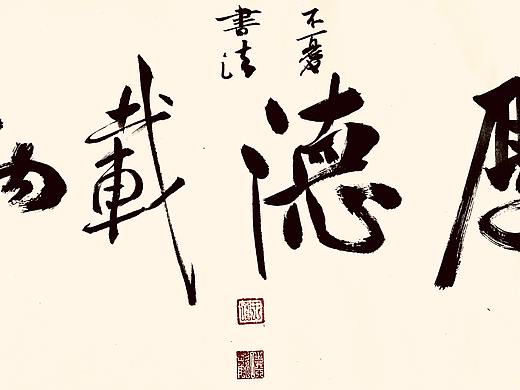 厚德載物
不憂
書法